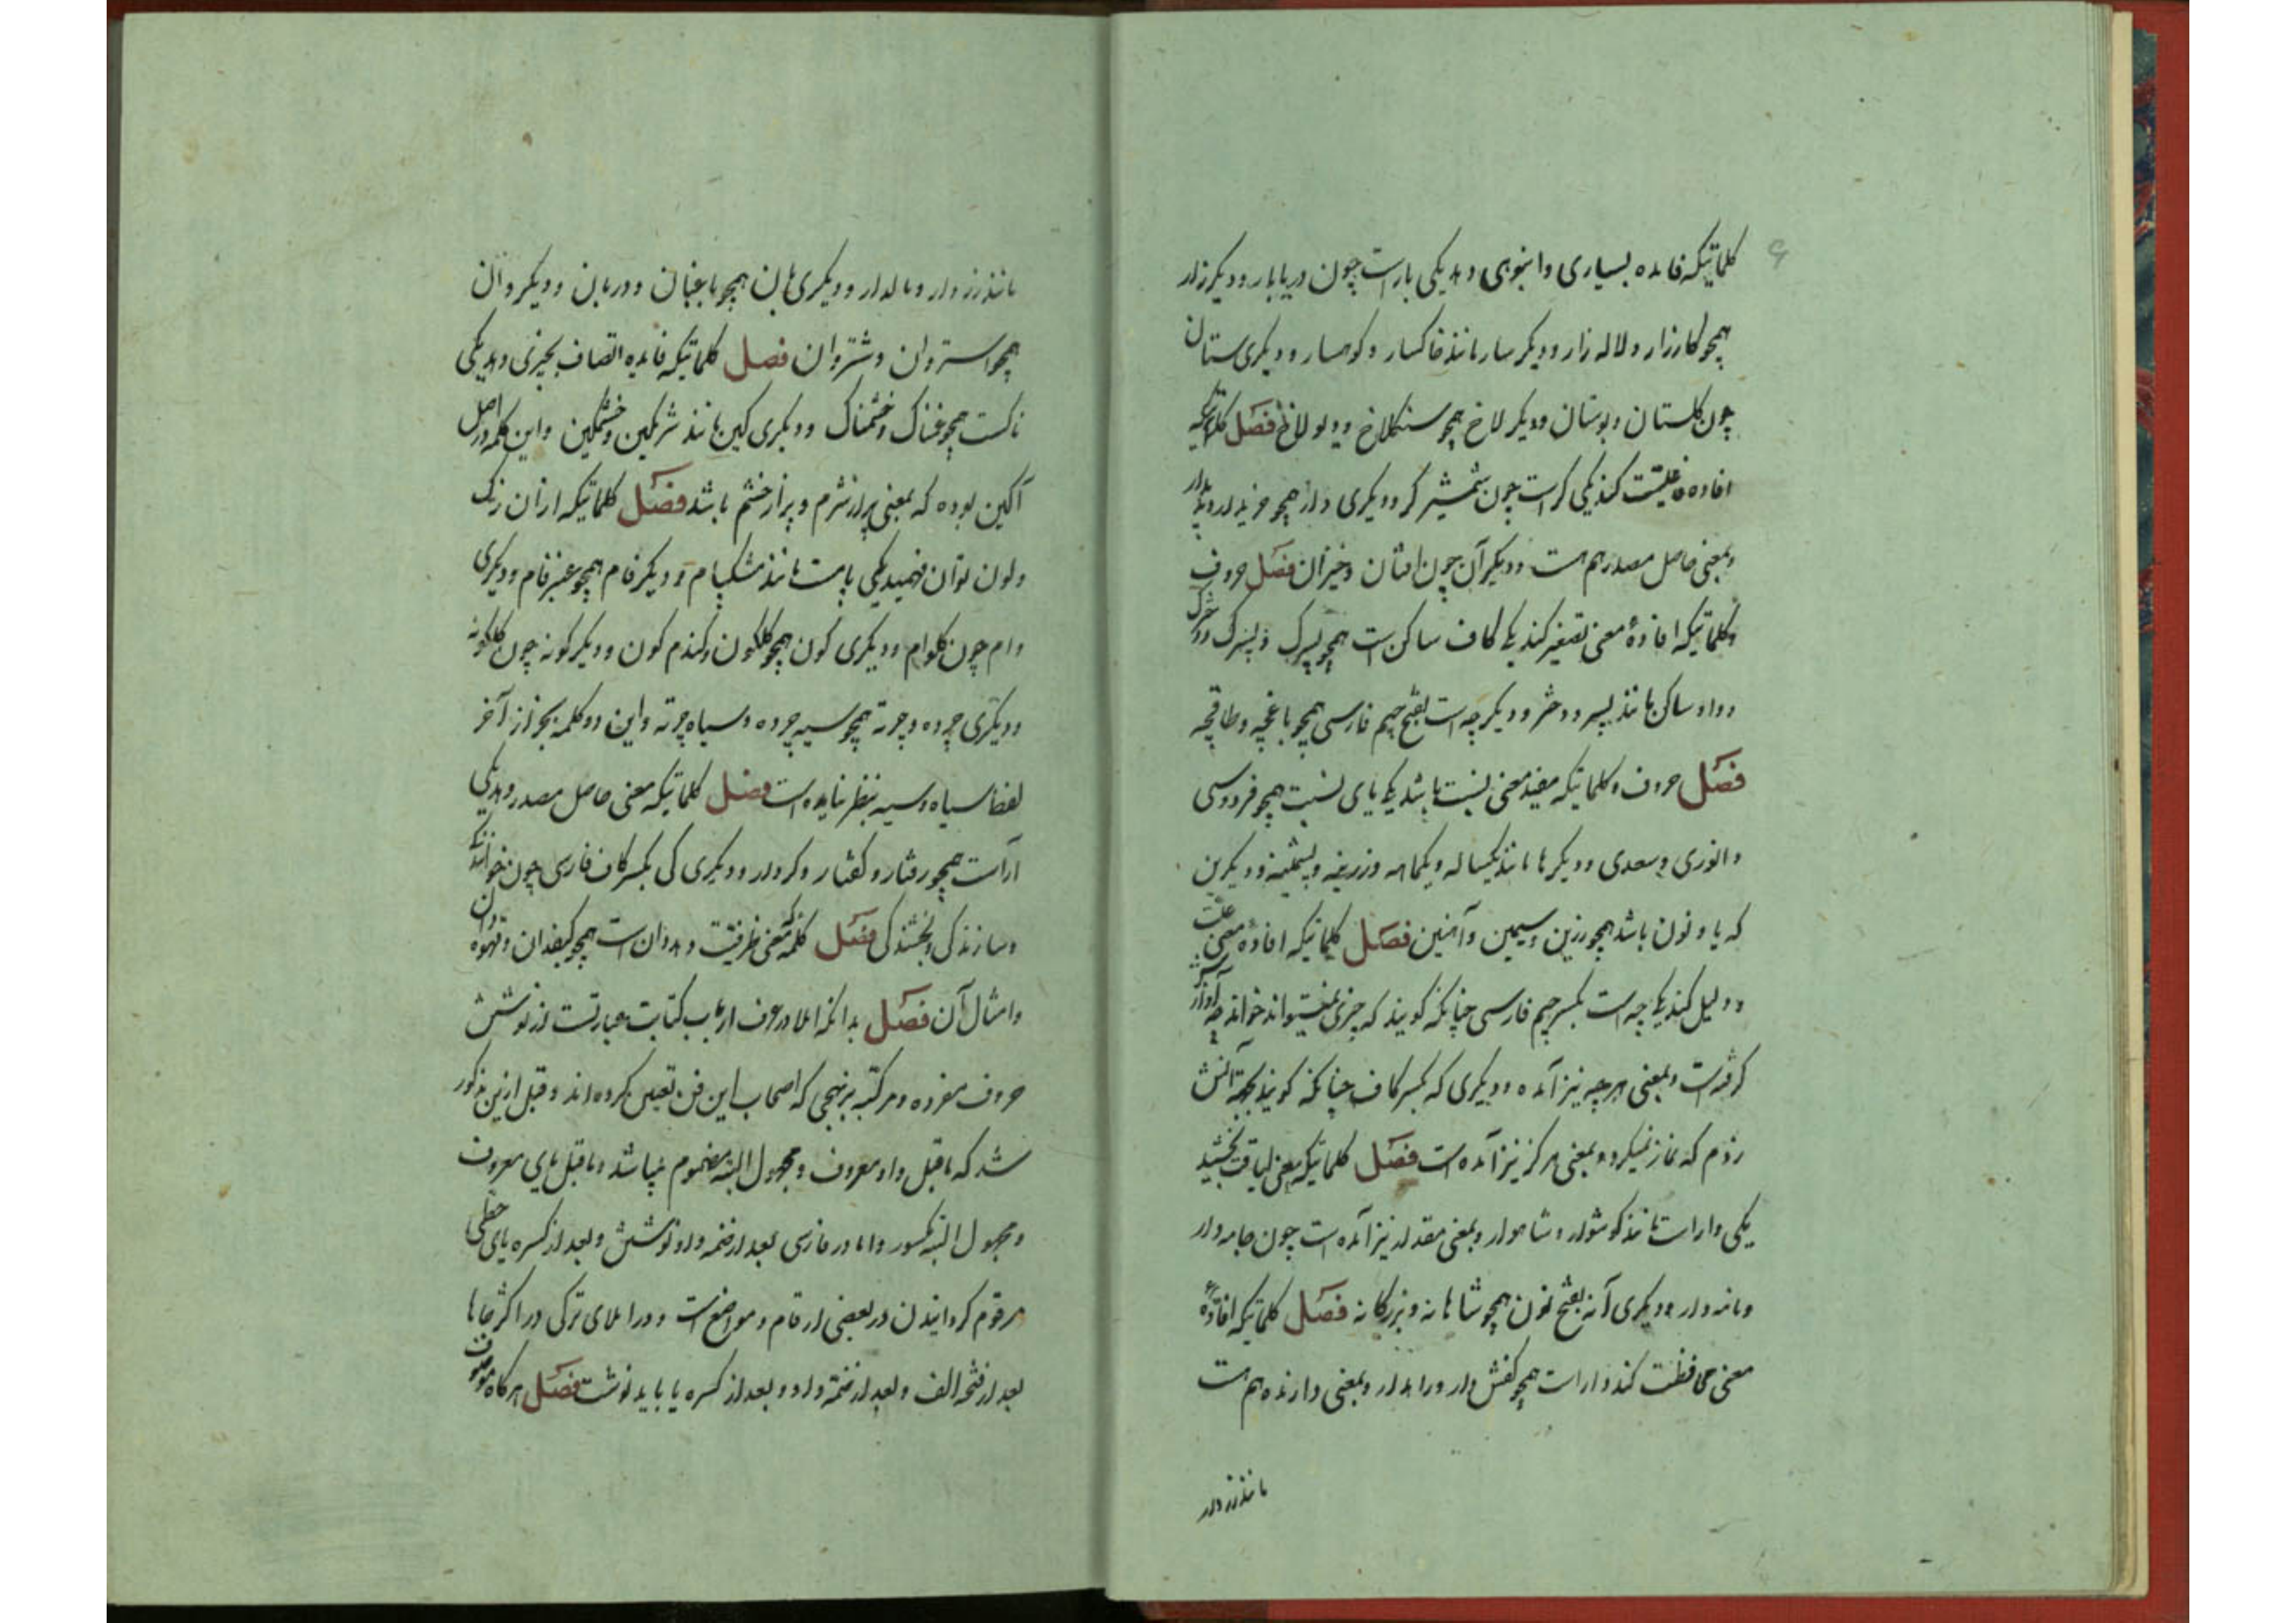 کلماتیکه فایده بسیاری و انبوهی دهد یکی بارست چون دریابار و دیگر زار
همچو کارزار و لاله زار و دیگر سار مانند خاکسار و کوهسار و دیگری ستان
چون گلستان و بوستان و دیگر لاخ همچو سنگلاخ و دیولاخ فصل کلماتیکه
افاده فاعلیت کند یکی گرست چون شمشیر گر و دیگری دار همچو خریدار و پدیدار
و بمعنی حاصل مصدر هم هست و دیگر آن چون افتان و خیزان فصل حروف
و کلماتیکه افادهٔ معنی تصغیر کند یکی کاف ساکن است همچو پسرک و دخترک
و واو ساکن مانند پسرو و دخترو و دیگر چه است بفتح جیم فارسی همچو باغچه و طاقچه
فصل حروف و کلماتیکه مفید معنی نسبت باشد یکی یای نسبت همچو فردوسی
و انوری و سعدی و دیگر ها مانند یکساله و یکماهه و زرینه و پشمینه و دیگر ین
که یا و نون باشد همچو زرین و سیمین و آهنین فصل کلماتیکه افادهٔ معنی علت
و دلیل کند یکی چه است بکسر جیم فارسی چنانکه گویند که چیزی نمیتواند خواند چه آوازش
گرفته است و بمعنی هرچه نیز آمده و دیگری که بکسر کاف چنانکه گویند بجهة آنش
زدم که نماز نمیکرد و بمعنی هرکز نیز آمده است فصل کلماتیکه معنی لیاقت بخشید
یکی وارست مانند گوشوار و شاهوار و بمعنی مقدار نیز آمده است چون جامه وار
و نامه وار و دیگری آنه بفتح نون همچو شاهانه و بزرگانه فصل کلماتیکه افادهٔ
معنی محافظت کند دارست همچو کفش دار و راهدار و بمعنی دارنده هم هست
مانند زردار
مانند زردار و مالدار و دیگری بان همچو باغبان و دربان و دیگر وان
همچو استروان و شتروان فصل کلماتیکه فایده اتصاف بچیزی دهد یکی
ناکست همچو غمناک و خشمناک و دیگری گین مانند شرمگین و خشمگین و این کلمه در اصل
آگین بوده که بمعنی پر از شرم و پر از خشم باشد فصل کلماتیکه از آن رنگ
و لون توان فهمید یکی پامست مانند مشکپام و دیگر فام همچو عنبرفام و دیگری
وام چون گلوام و دیگری گون همچو گلگون و گندم گون و دیگر گونه چون گلگونه
و دیگری چرده و چرته همچو سیه چرده و سیاه چرته و این دو کلمه بجز از آخر
لفظ سیاه و سیه بنظر نیامده است فصل کلماتیکه معنی حاصل مصدر دهد یکی
آرست همچو رفتار و گفتار و کردار و دیگری گی بکسر کاف فارسی چون خوانندگی
و سازندگی و بخشندگی فصل کلمه که معنی ظرفیت دهد دان است همچو کیفدان و قهوه دان
و امثال آن فصل بدانکه املا در عرف ارباب کتابت عبارتست از نوشتن
حروف مفرده و مرکبه بر نهجی که اصحاب این فن تعیین کرده اند و قبل ازین مذکور
شد که ماقبل واو معروف و مجهول البته مضموم میباشد و ماقبل یای معروف
و مجهول البته مکسور و اما در فارسی بعد از ضمه واو نوشتن و بعد از کسره یای حطی
مرقوم گردانیدن در بعضی ارقام و مواضع است و در املای ترکی در اکثر جاها
بعد از فتحه الف و بعد از ضمه واو و بعد از کسره یا باید نوشت فصل هرگاه موصوف